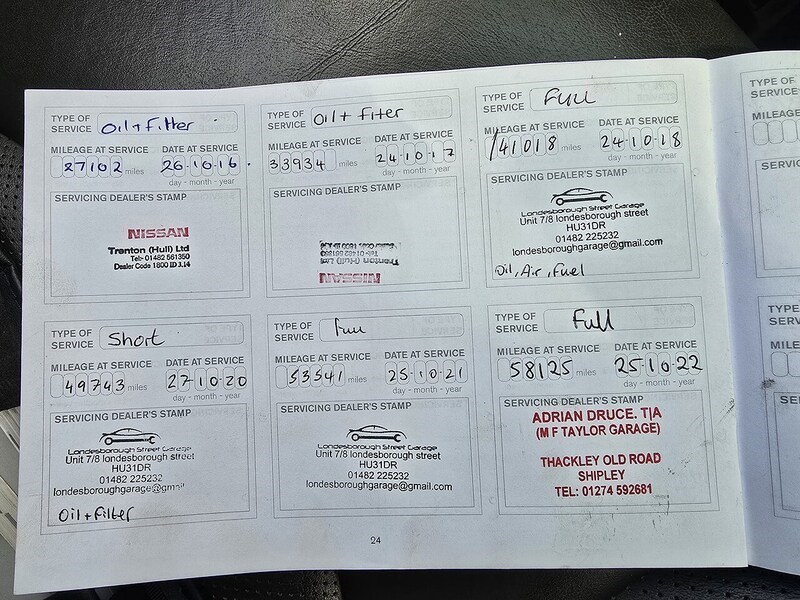 TYPE OF SERVICE Oil + Filter
MILEAGE AT SERVICE DATE AT SERVICE
27102 miles 26-10-16
day - month - year
SERVICING DEALER'S STAMP
NISSAN
Trenton (Hull) Ltd
Tel:- 01482 561350
Dealer Code 1800 ID 3.14
TYPE OF SERVICE Oil + Fiter
MILEAGE AT SERVICE DATE AT SERVICE
33934 miles 24-10-17
day - month - year
SERVICING DEALER'S STAMP
NISSAN
Trenton (Hull) Ltd
TYPE OF SERVICE Full
MILEAGE AT SERVICE DATE AT SERVICE
41018 miles 24-10-18
day - month - year
SERVICING DEALER'S STAMP
Londesborough Street Garage
Unit 7/8 londesborough street
HU31DR
01482 225232
londesboroughgarage@gmail.com
Oil, Air, Fuel
TYPE OF SERVICE Short
MILEAGE AT SERVICE DATE AT SERVICE
49743 miles 27-10-20
day - month - year
SERVICING DEALER'S STAMP
Londesborough Street Garage
Unit 7/8 londesborough street
HU31DR
01482 225232
londesboroughgarage@gmail
Oil + Filter
TYPE OF SERVICE Full
MILEAGE AT SERVICE DATE AT SERVICE
53541 miles 25-10-21
day - month - year
SERVICING DEALER'S STAMP
Londesborough Street Garage
Unit 7/8 londesborough street
HU31DR
01482 225232
londesboroughgarage@gmail.com
TYPE OF SERVICE Full
MILEAGE AT SERVICE DATE AT SERVICE
58125 miles 25-10-22
day - month - year
SERVICING DEALER'S STAMP
ADRIAN DRUCE. T|A
(M F TAYLOR GARAGE)
THACKLEY OLD ROAD
SHIPLEY
TEL: 01274 592681
24
TYPE OF
SERVICE
MILEAGE